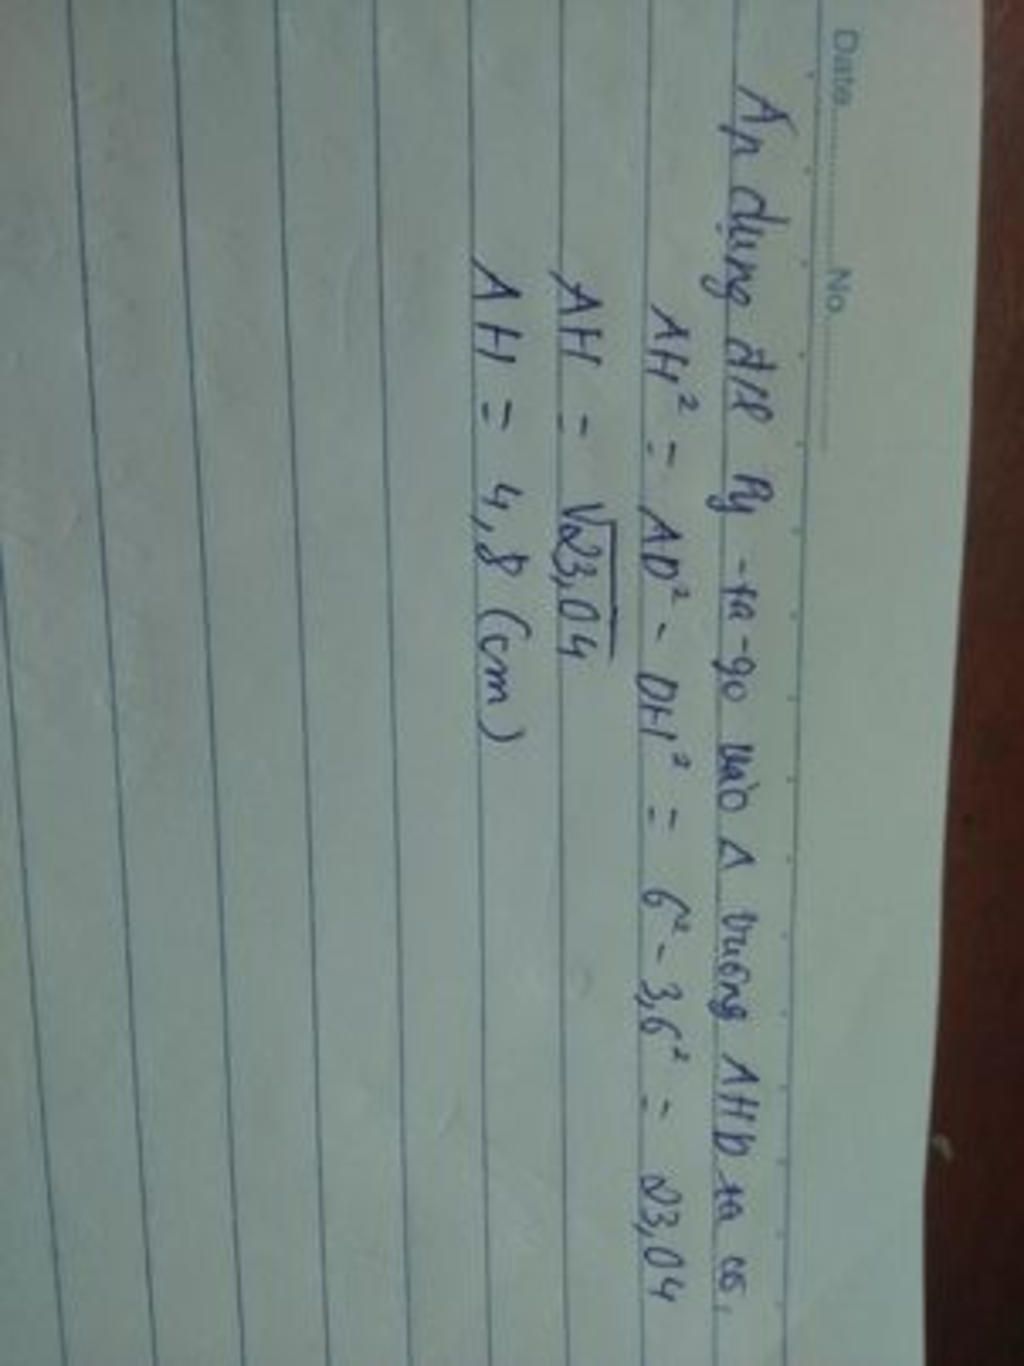 Date............No............
Áp dụng đ/l Py-ta-go vào Δ vuông AHD ta có,
AH² = AD² - DH² = 6² - 3,6² = 23,04
AH = √23,04
AH = 4,8 (cm)